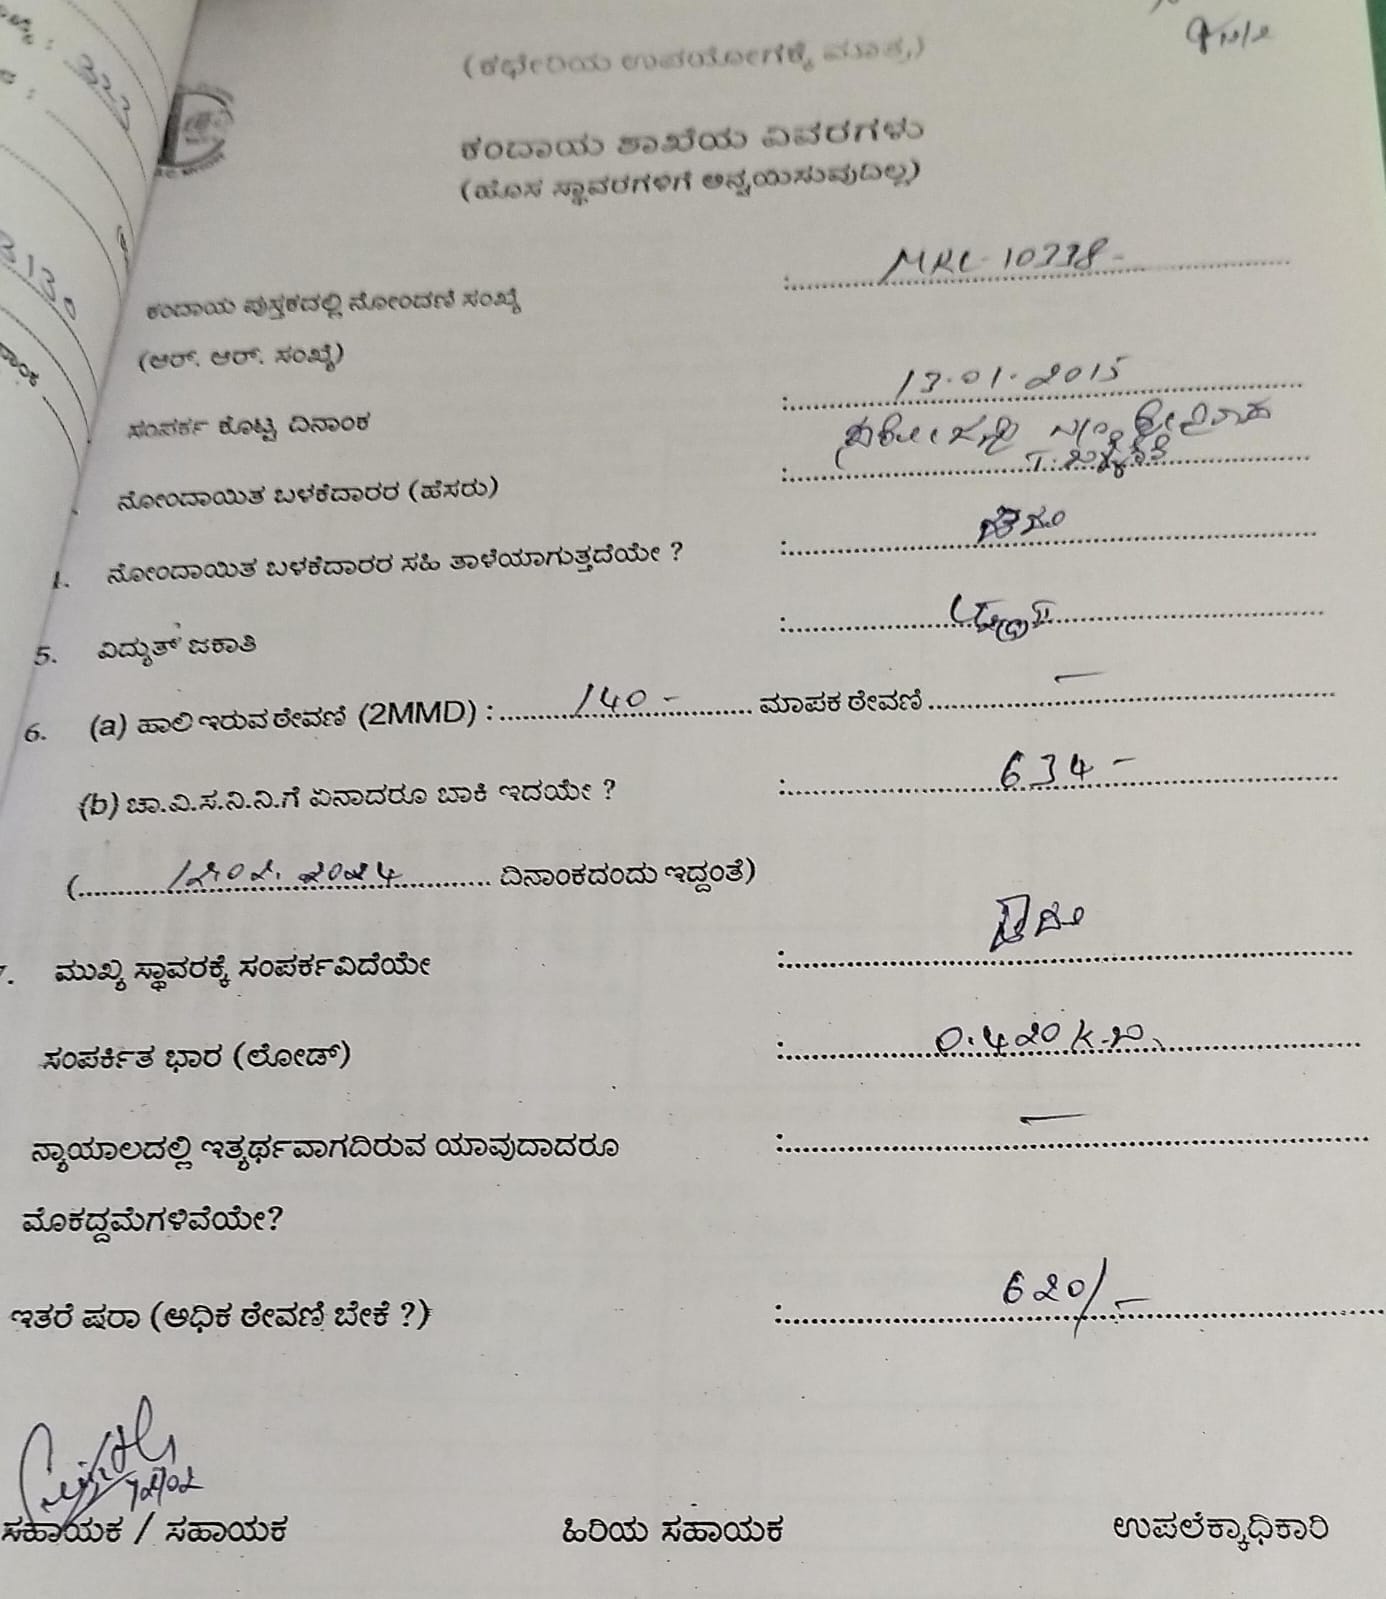 (ಕಛೇರಿಯ ಉಪಯೋಗಕ್ಕೆ ಮಾತ್ರ)
ಕಂದಾಯ ಶಾಖೆಯ ವಿವರಗಳು
(ಹೊಸ ಸ್ಥಾವರಗಳಿಗೆ ಅನ್ವಯಿಸುವುದಿಲ್ಲ)
ಕಂದಾಯ ಪುಸ್ತಕದಲ್ಲಿ ನೋಂದಣಿ ಸಂಖ್ಯೆ : MRL-10778-
(ಆರ್. ಆರ್. ಸಂಖ್ಯೆ)
ಸಂಪರ್ಕ ಕೊಟ್ಟ ದಿನಾಂಕ : 17.01.2015
ನೋಂದಾಯಿತ ಬಳಕೆದಾರರ (ಹೆಸರು) :
ನೋಂದಾಯಿತ ಬಳಕೆದಾರರ ಸಹಿ ತಾಳೆಯಾಗುತ್ತದೆಯೇ ? :
5. ವಿದ್ಯುತ್ ಜಕಾತಿ :
6. (a) ಹಾಲಿ ಇರುವ ಠೇವಣಿ (2MMD) : 140 - ಮಾಪಕ ಠೇವಣಿ —
(b) ಚಾ.ವಿ.ಸ.ನಿ.ನಿ.ಗೆ ಏನಾದರೂ ಬಾಕಿ ಇದಯೇ ? : 634 -
( 12.02.2024 ದಿನಾಂಕದಂದು ಇದ್ದಂತೆ)
ಮುಖ್ಯ ಸ್ಥಾವರಕ್ಕೆ ಸಂಪರ್ಕವಿದೆಯೇ :
ಸಂಪರ್ಕಿತ ಭಾರ (ಲೋಡ್) : 0.420
ನ್ಯಾಯಾಲದಲ್ಲಿ ಇತ್ಯರ್ಥವಾಗದಿರುವ ಯಾವುದಾದರೂ : —
ಮೊಕದ್ದಮೆಗಳಿವೆಯೇ?
ಇತರೆ ಷರಾ (ಅಧಿಕ ಠೇವಣಿ ಬೇಕೆ ?) : 620/-
ಸಹಾಯಕ / ಸಹಾಯಕ ಹಿರಿಯ ಸಹಾಯಕ ಉಪಲೆಕ್ಕಾಧಿಕಾರಿ